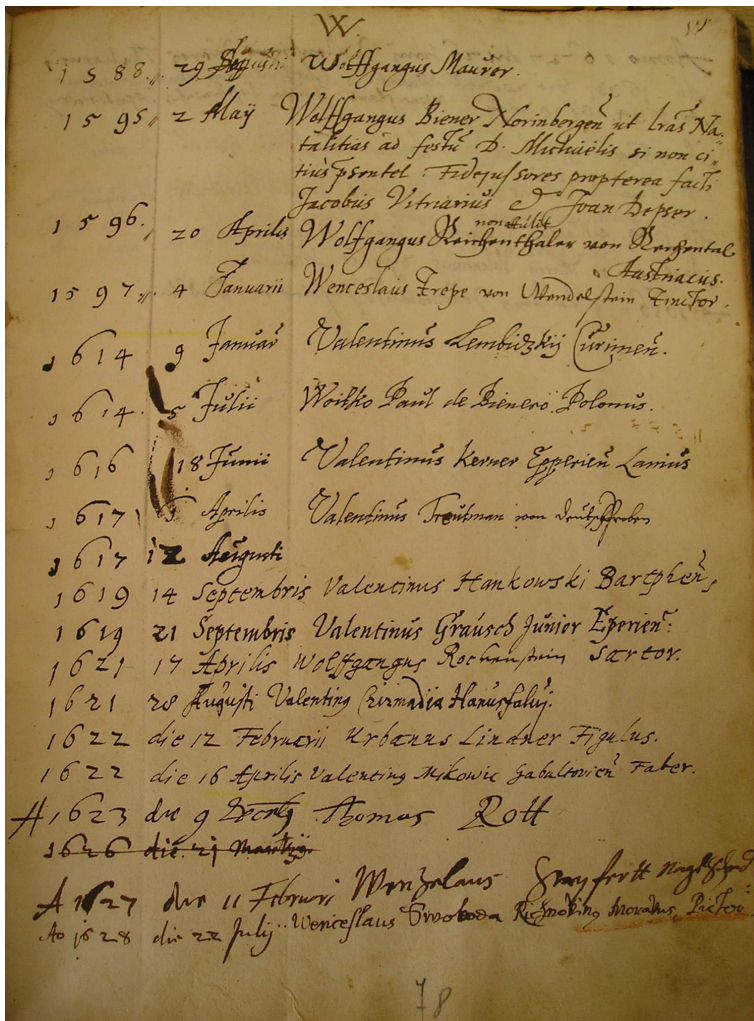 W.
1588. 29 Augusti Wolffgangus Maurer.
1595 2 Maij Wolffgangus Biener Norinbergen ut lras Na-
talitias ad festu D. Michaelis si non ci-
tius psentet. Fidejussores propterea facti
Jacobus Vitriarius & Joan Depser.
1596. 20 Aprilis Wolfgangus Reichenthaler von Rechental
non
Austriacus.
1597 4 Januarii Wenceslaus von Wendelstein Tinctor.
1614 9 Januar Valentinus Lembidzkij Curimen.
1614. 5 Julii Woitko Paul de Polonus.
1616 18 Junii Valentinus Kerner Epperien Lanius
1617 Aprilis Valentinus Troutman von
1617 12 Augusti
1619 14 Septembris Valentinus Hankowski Bartphen,
1619 21 Septembris Valentinus Grausch Junior Eperien:
1621 17 Aprilis Wolffgangus Rockenstein Sartor.
1621 28 Augusti Valenting Cizmadia Hanusfaluj.
1622 die 12 Februarii Urbanus Lindner Figulus.
1622 die 16 Aprilis Valenting Mikowic Faber.
A 1623 die 9 Thomas Rott
1626 die 21 Martij.
A 1627 die 11 Februari Wenzelaus
Ao 1628 die 22 Julij Wenceslaus Swoboda Moravus Pictor
78